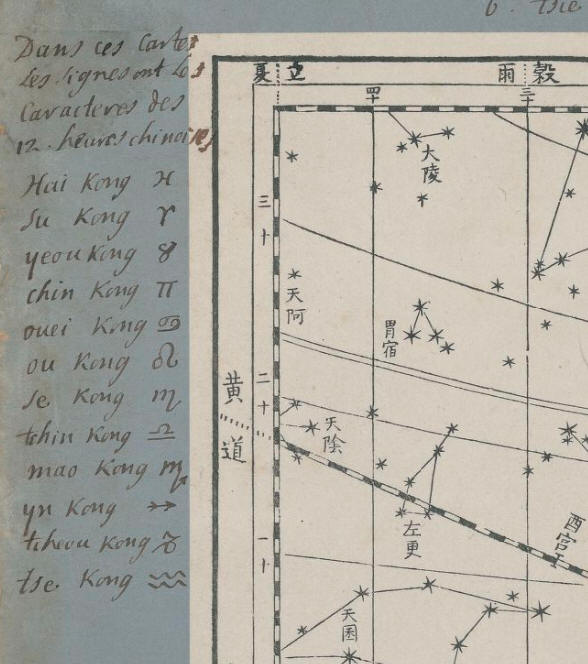 6. tsie
Dans ces Cartes
les signes ont les
Caracteres des
12. heures chinoises
Hai Kong ♓
Su Kong ♈
yeou Kong ♉
chin Kong ♊
ouei Kong ♋
ou Kong ♌
se Kong ♍
tchin Kong ♎
mao Kong ♏
yn Kong ♐
tcheou Kong ♑
tse Kong ♒
立夏
穀雨
四十
三十
大陵
三十
天阿
胃宿
二十
黄道
天陰
左更
酉宮
一十
天囷